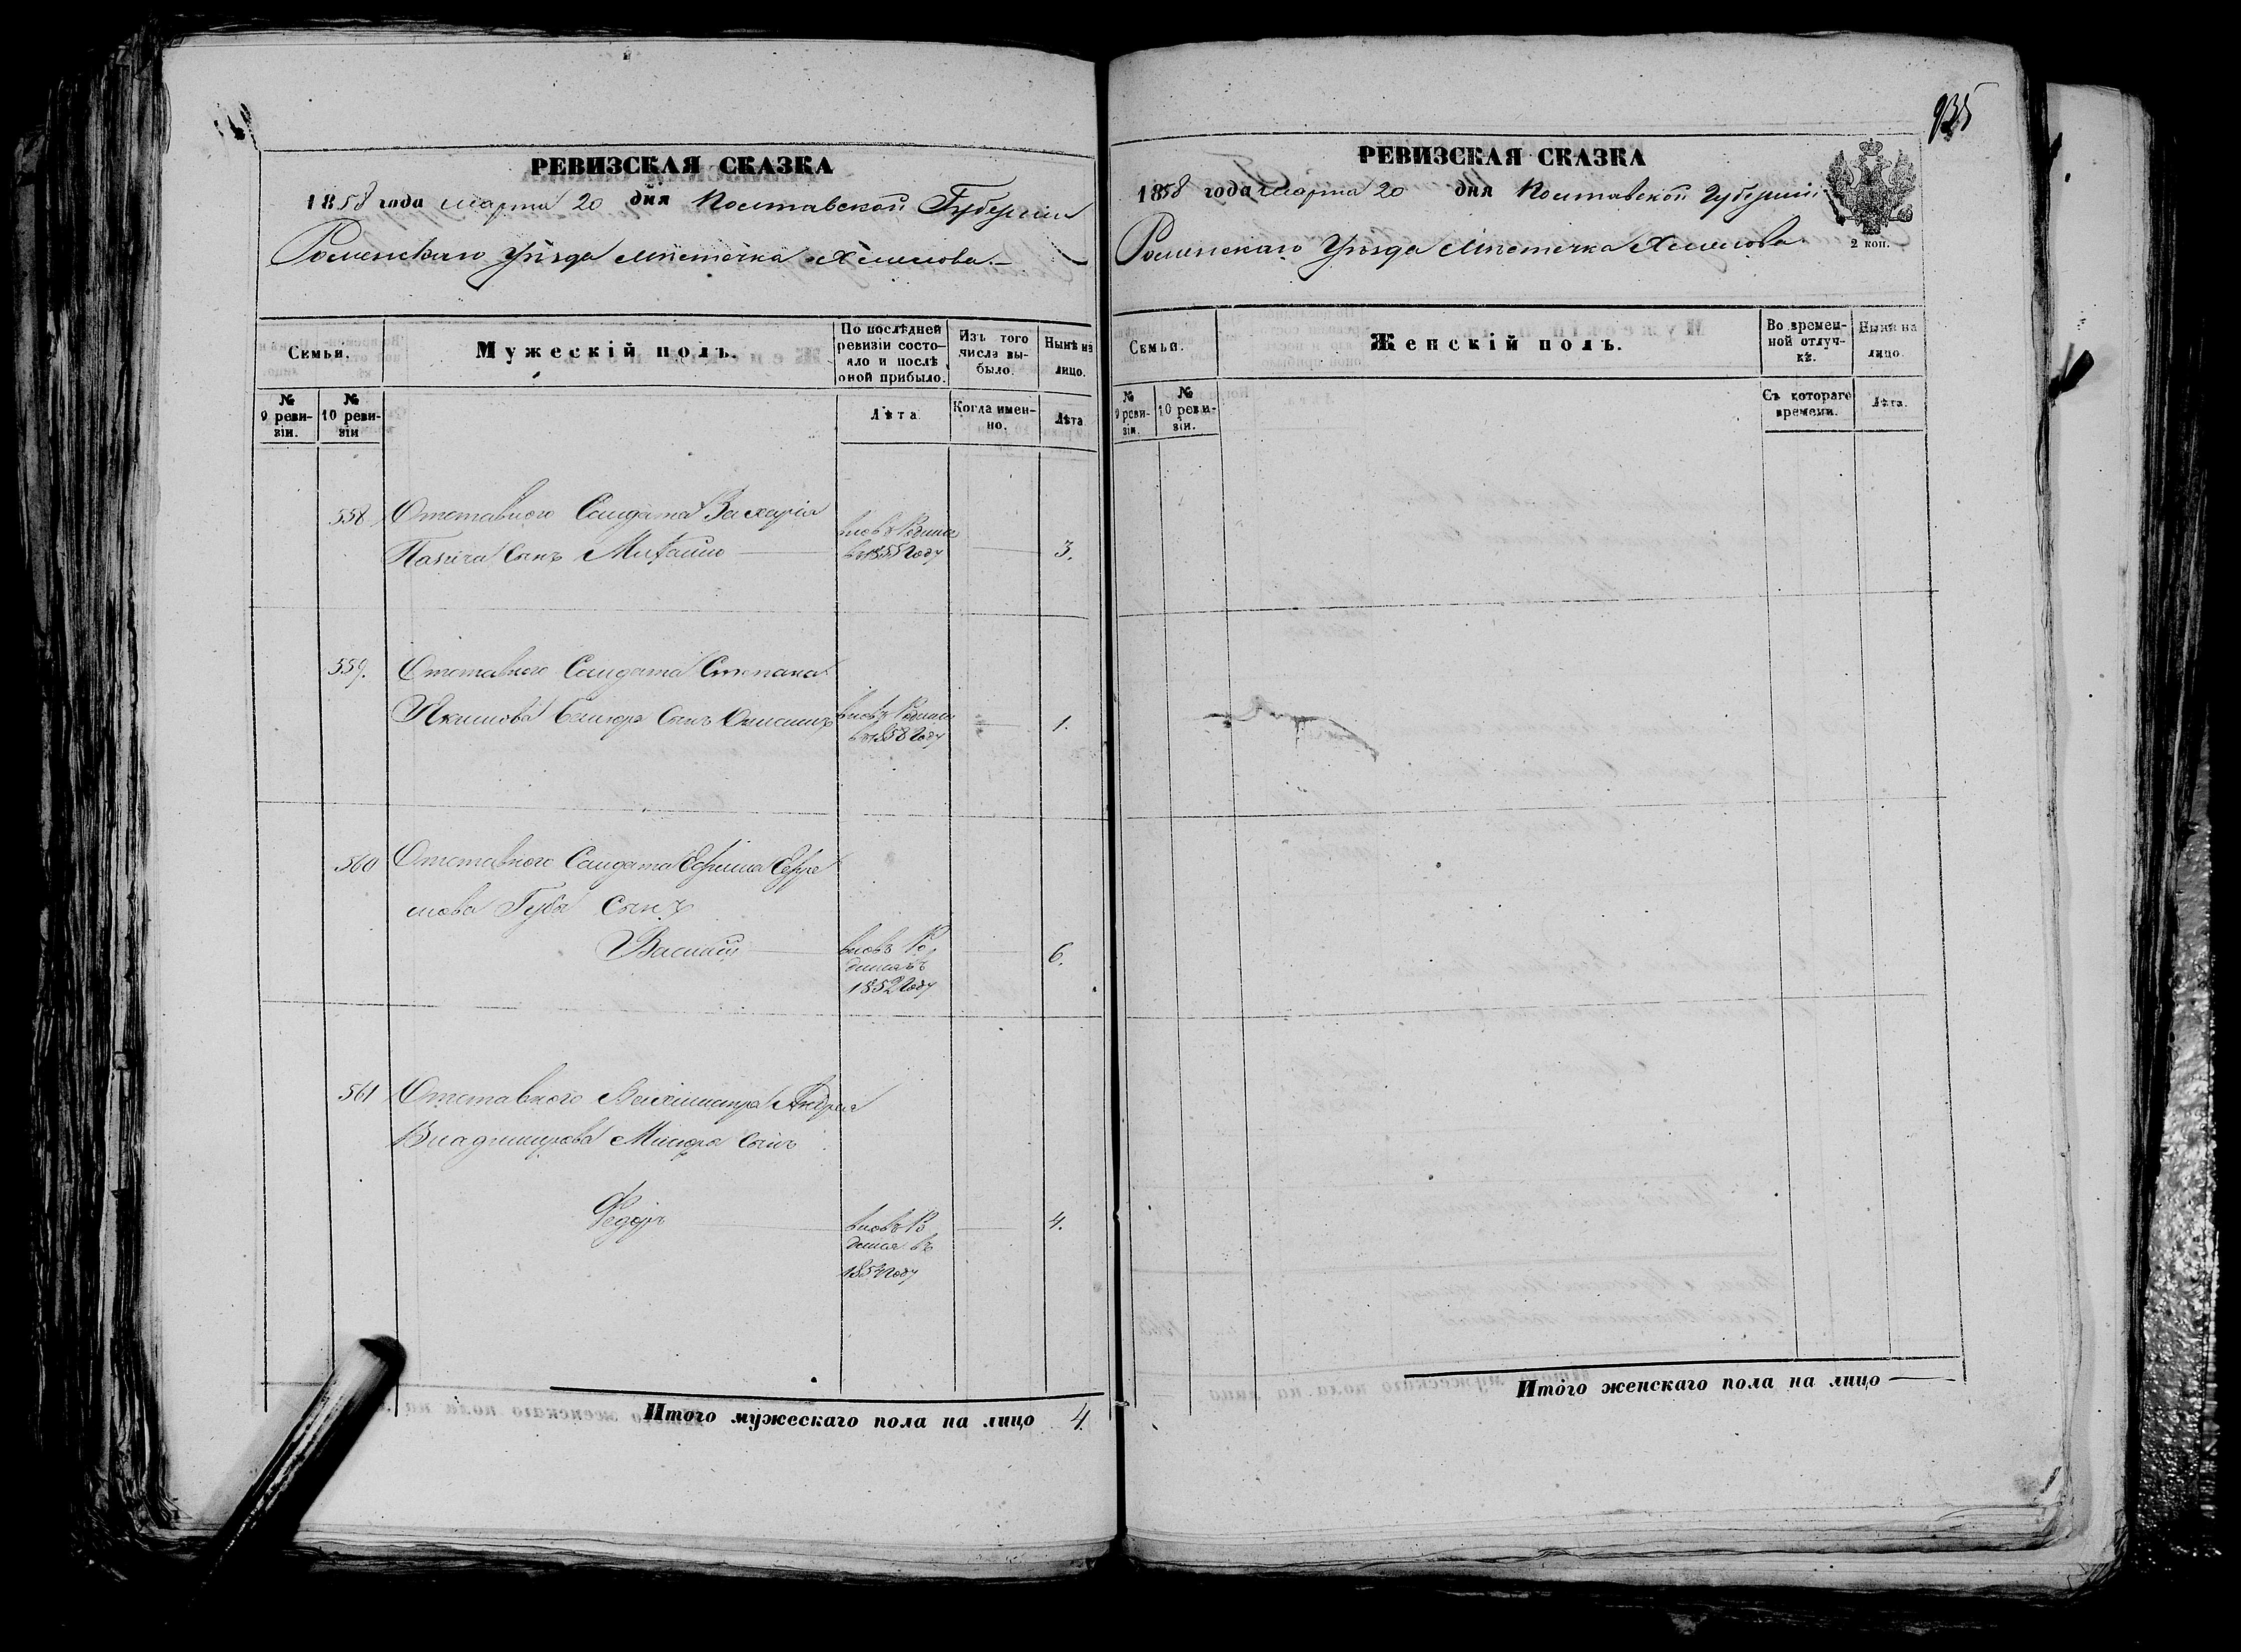 935
РЕВИЗСКАЯ СКАЗКА
1858 года марта 20 дня Полтавской Губерніи
Роменскаго Уѣзда Мѣстечка Хмелова
Семьи.
Мужескій полъ.
По послѣдней ревизіи состояло и послѣ оной прибыло.
Изъ того числа выбыло.
Нынѣ на лицо.
№ 9 ревизіи.
№ 10 ревизіи
Лѣта
Когда именно.
Лѣта
558 Отставного Салдата Захарія
вновь Родился
Сынъ Михайло
в 1855 Году
3.
559. Отставного Салдата Степана
Якимова Сынъ
вновь Родился
1.
в 1858 Году
560 Отставного Салдата Ефима Ефре
мова Губы Сынъ
Василій
вновь Ро
6.
дился въ
1852 Году
561 Отставного Вахмистра Андрея
Владимирова Сынъ
Федоръ
вновь Ро
4.
дился въ
1854 Году
Итого мужескаго пола на лицо 4.
РЕВИЗСКАЯ СКАЗКА
1858 года марта 20 дня Полтавской Губерніи
2 коп.
Роменскаго Уѣзда Мѣстечка Хмелова
Семьи.
Женскій полъ.
Во временной отлучкѣ.
Нынѣ на лицо.
№ 9 ревизіи.
№ 10 ревизіи.
Съ котораго времени.
Лѣта.
Итого женскаго пола на лицо